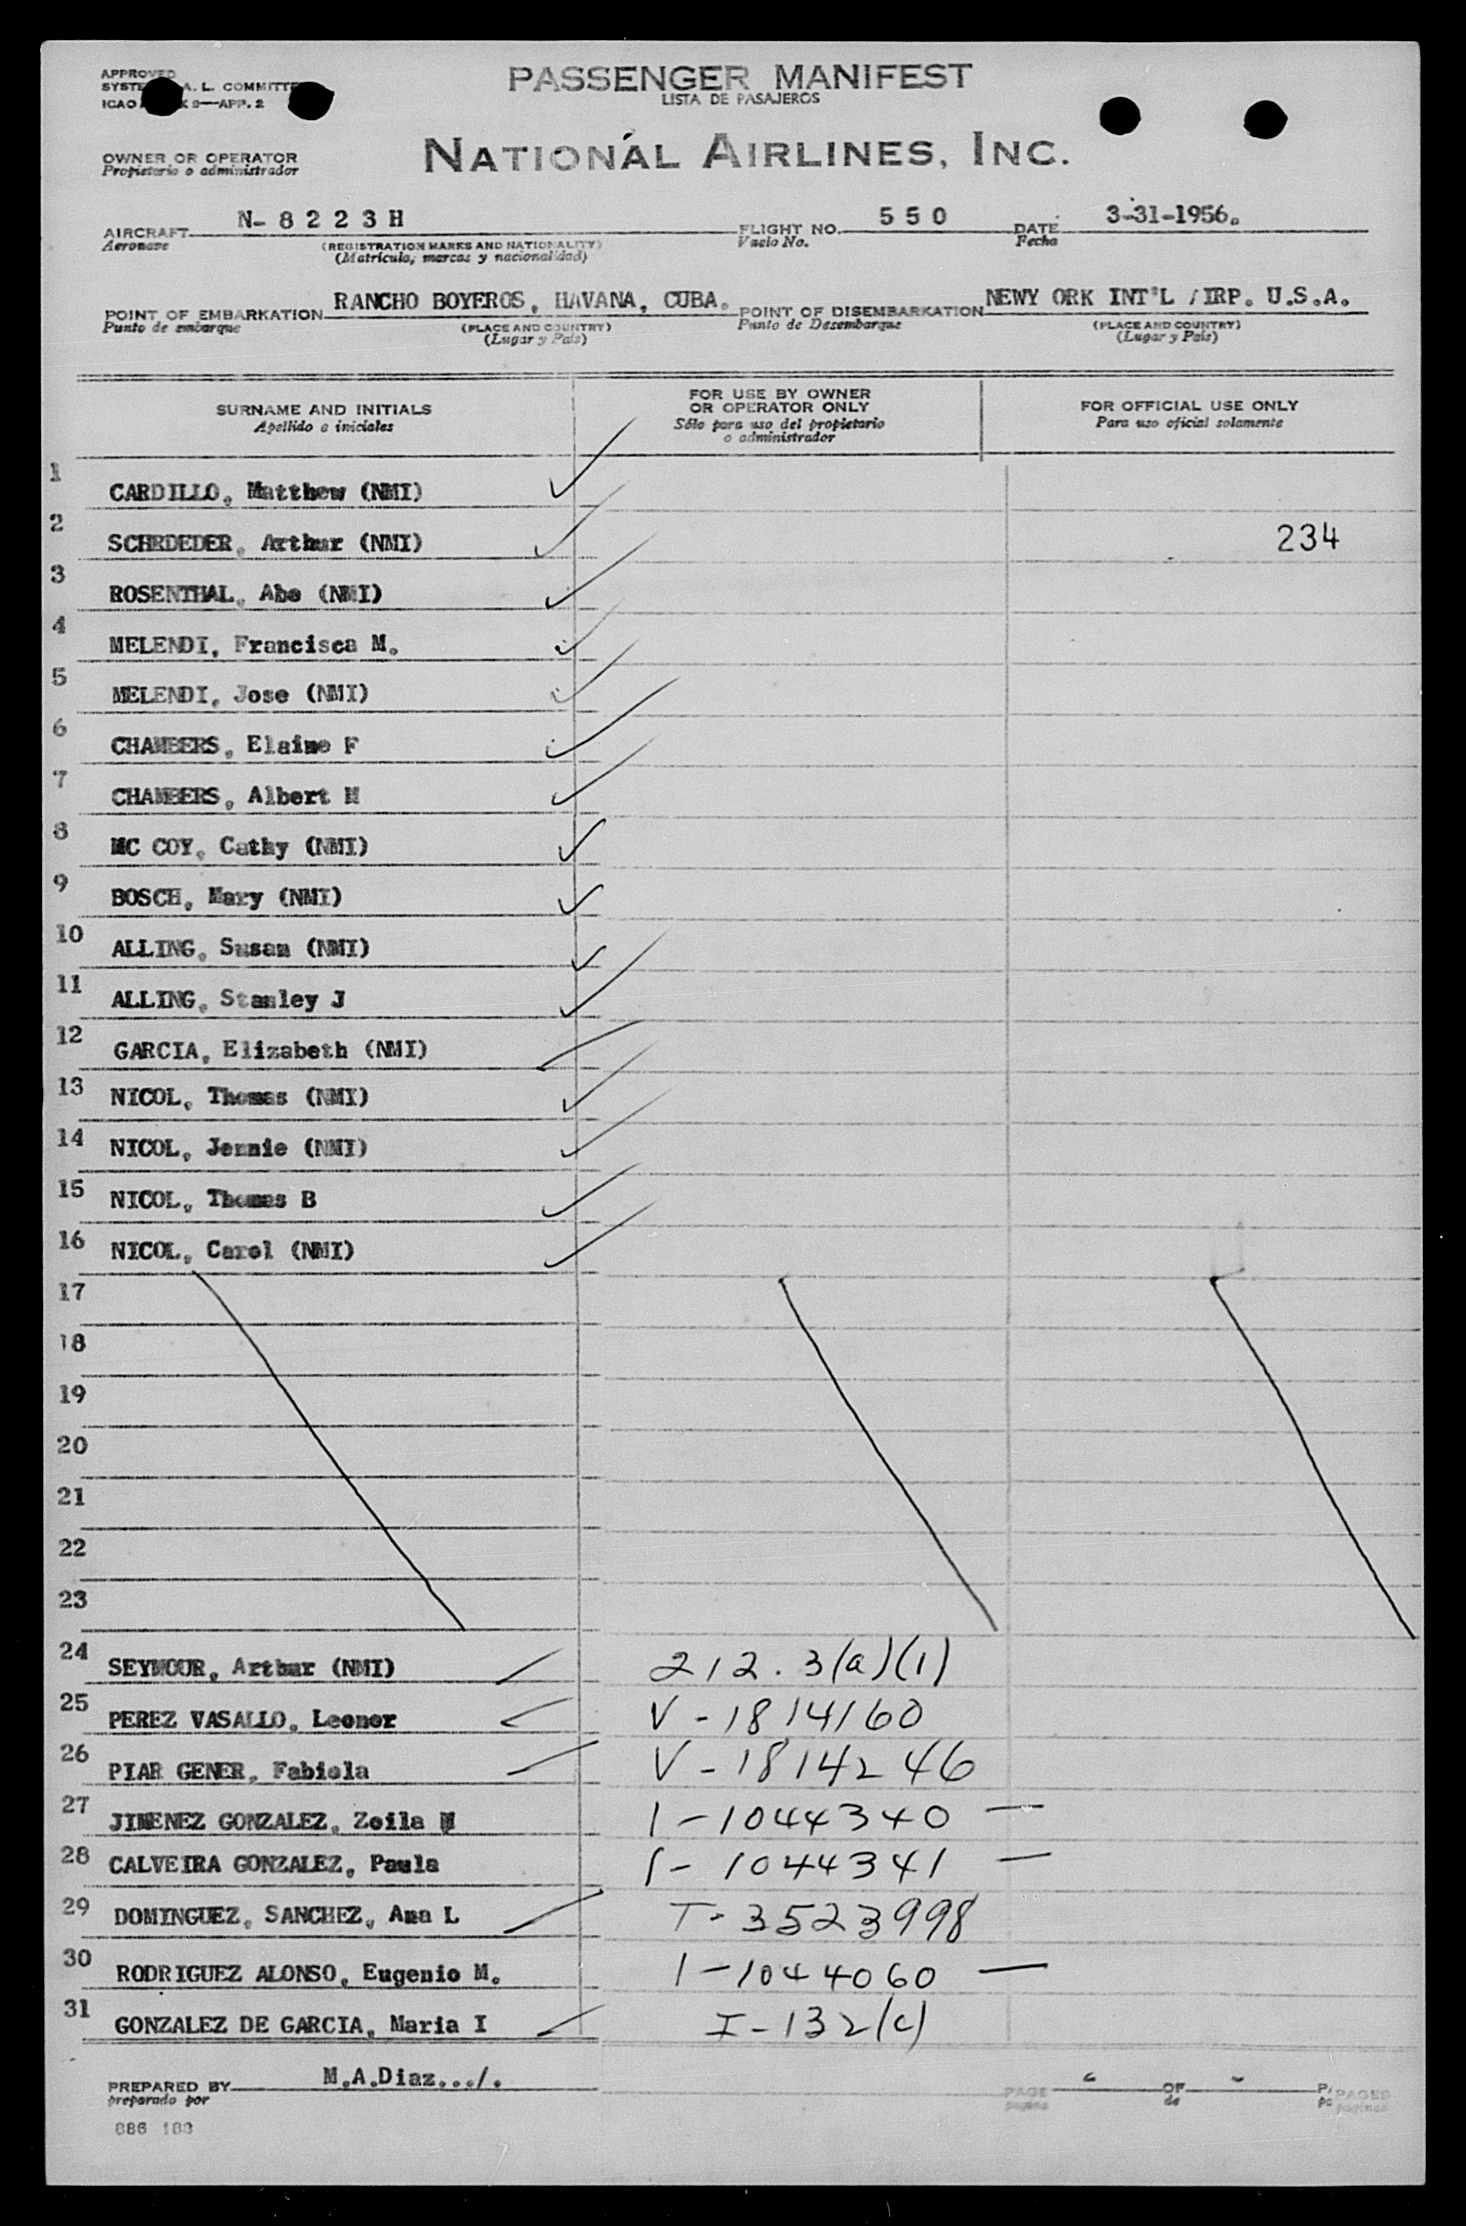 APPROVED
PASSENGER MANIFEST
A. L. COMMITTE
LISTA DE PASAJEROS
ICAO 9—APP. 2
NATIONAL AIRLINES, INC.
OWNER OR OPERATOR
Propietario o administrador
AIRCRAFT N- 8 2 2 3 H FLIGHT NO. 5 5 0 DATE 3-31-1956.
Aeronave (REGISTRATION MARKS AND NATIONALITY) Vuelo No. Fecha
(Matrícula, marcas y nacionalidad)
POINT OF EMBARKATION RANCHO BOYEROS, HAVANA, CUBA. POINT OF DISEMBARKATION NEWY ORK INT'L /IRP. U.S.A.
Punto de embarque (PLACE AND COUNTRY) Punto de Desembarque (PLACE AND COUNTRY)
(Lugar y País) (Lugar y País)
SURNAME AND INITIALS
Apellido e iniciales
FOR USE BY OWNER
OR OPERATOR ONLY
Sólo para uso del propietario
o administrador
FOR OFFICIAL USE ONLY
Para uso oficial solamente
1 CARDILLO, Matthew (NMI)
2 SCHRDEDER, Arthur (NMI) 234
3 ROSENTHAL, Abe (NMI)
4 MELENDI, Francisca M.
5 MELENDI, Jose (NMI)
6 CHAMBERS, Elaine F
7 CHAMBERS, Albert M
8 MC COY, Cathy (NMI)
9 BOSCH, Mary (NMI)
10 ALLING, Susan (NMI)
11 ALLING, Stanley J
12 GARCIA, Elizabeth (NMI)
13 NICOL, Thomas (NMI)
14 NICOL, Jennie (NMI)
15 NICOL, Thomas B
16 NICOL, Carol (NMI)
17
18
19
20
21
22
23
24 SEYMOUR, Arthur (NMI) 212.3(a)(1)
25 PEREZ VASALLO, Leonor V-1814160
26 PIAR GENER, Fabiola V-1814246
27 JIMENEZ GONZALEZ, Zoila M I-1044340 —
28 CALVEIRA GONZALEZ, Paula I-1044341 —
29 DOMINGUEZ, SANCHEZ, Ana L T-3523998
30 RODRIGUEZ ALONSO, Eugenio M. I-1044060 —
31 GONZALEZ DE GARCIA, Maria I I-132(c)
PREPARED BY M.A.Diaz.../. PAGE OF PAGES
preparado por página de páginas
886 183